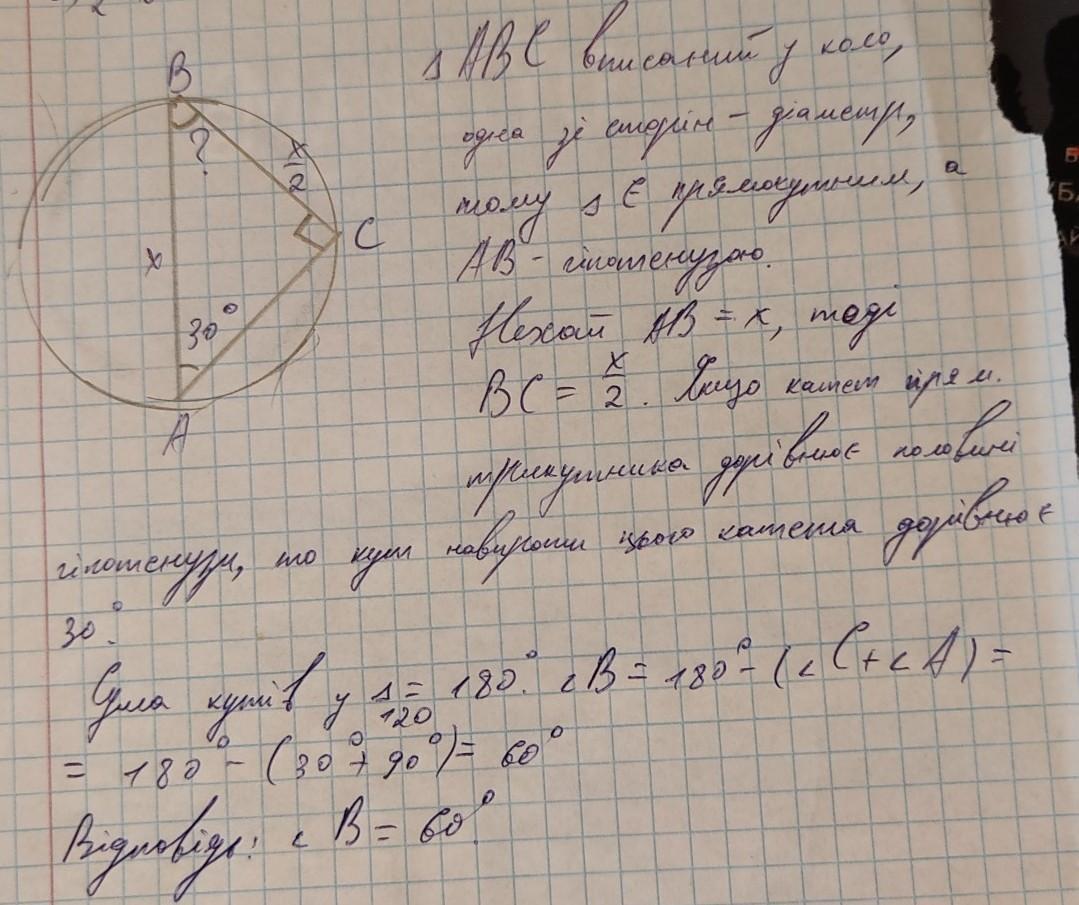 B
?
x/2
C
x
30°
A
△ ABC вписаний у коло,
одна зі сторін – діаметр,
тому △ є прямокутним, а
AB – гіпотенузою.
Нехай AB = x, тоді
BC = x/2. Якщо катет прям.
трикутника дорівнює половині
гіпотенузи, то кут навпроти цього катета дорівнює
30°.
Сума кутів у △ = 180°. ∠B = 180° – (∠C + ∠A) =
120
= 180° – (30° + 90°) = 60°
Відповідь: ∠B = 60°.